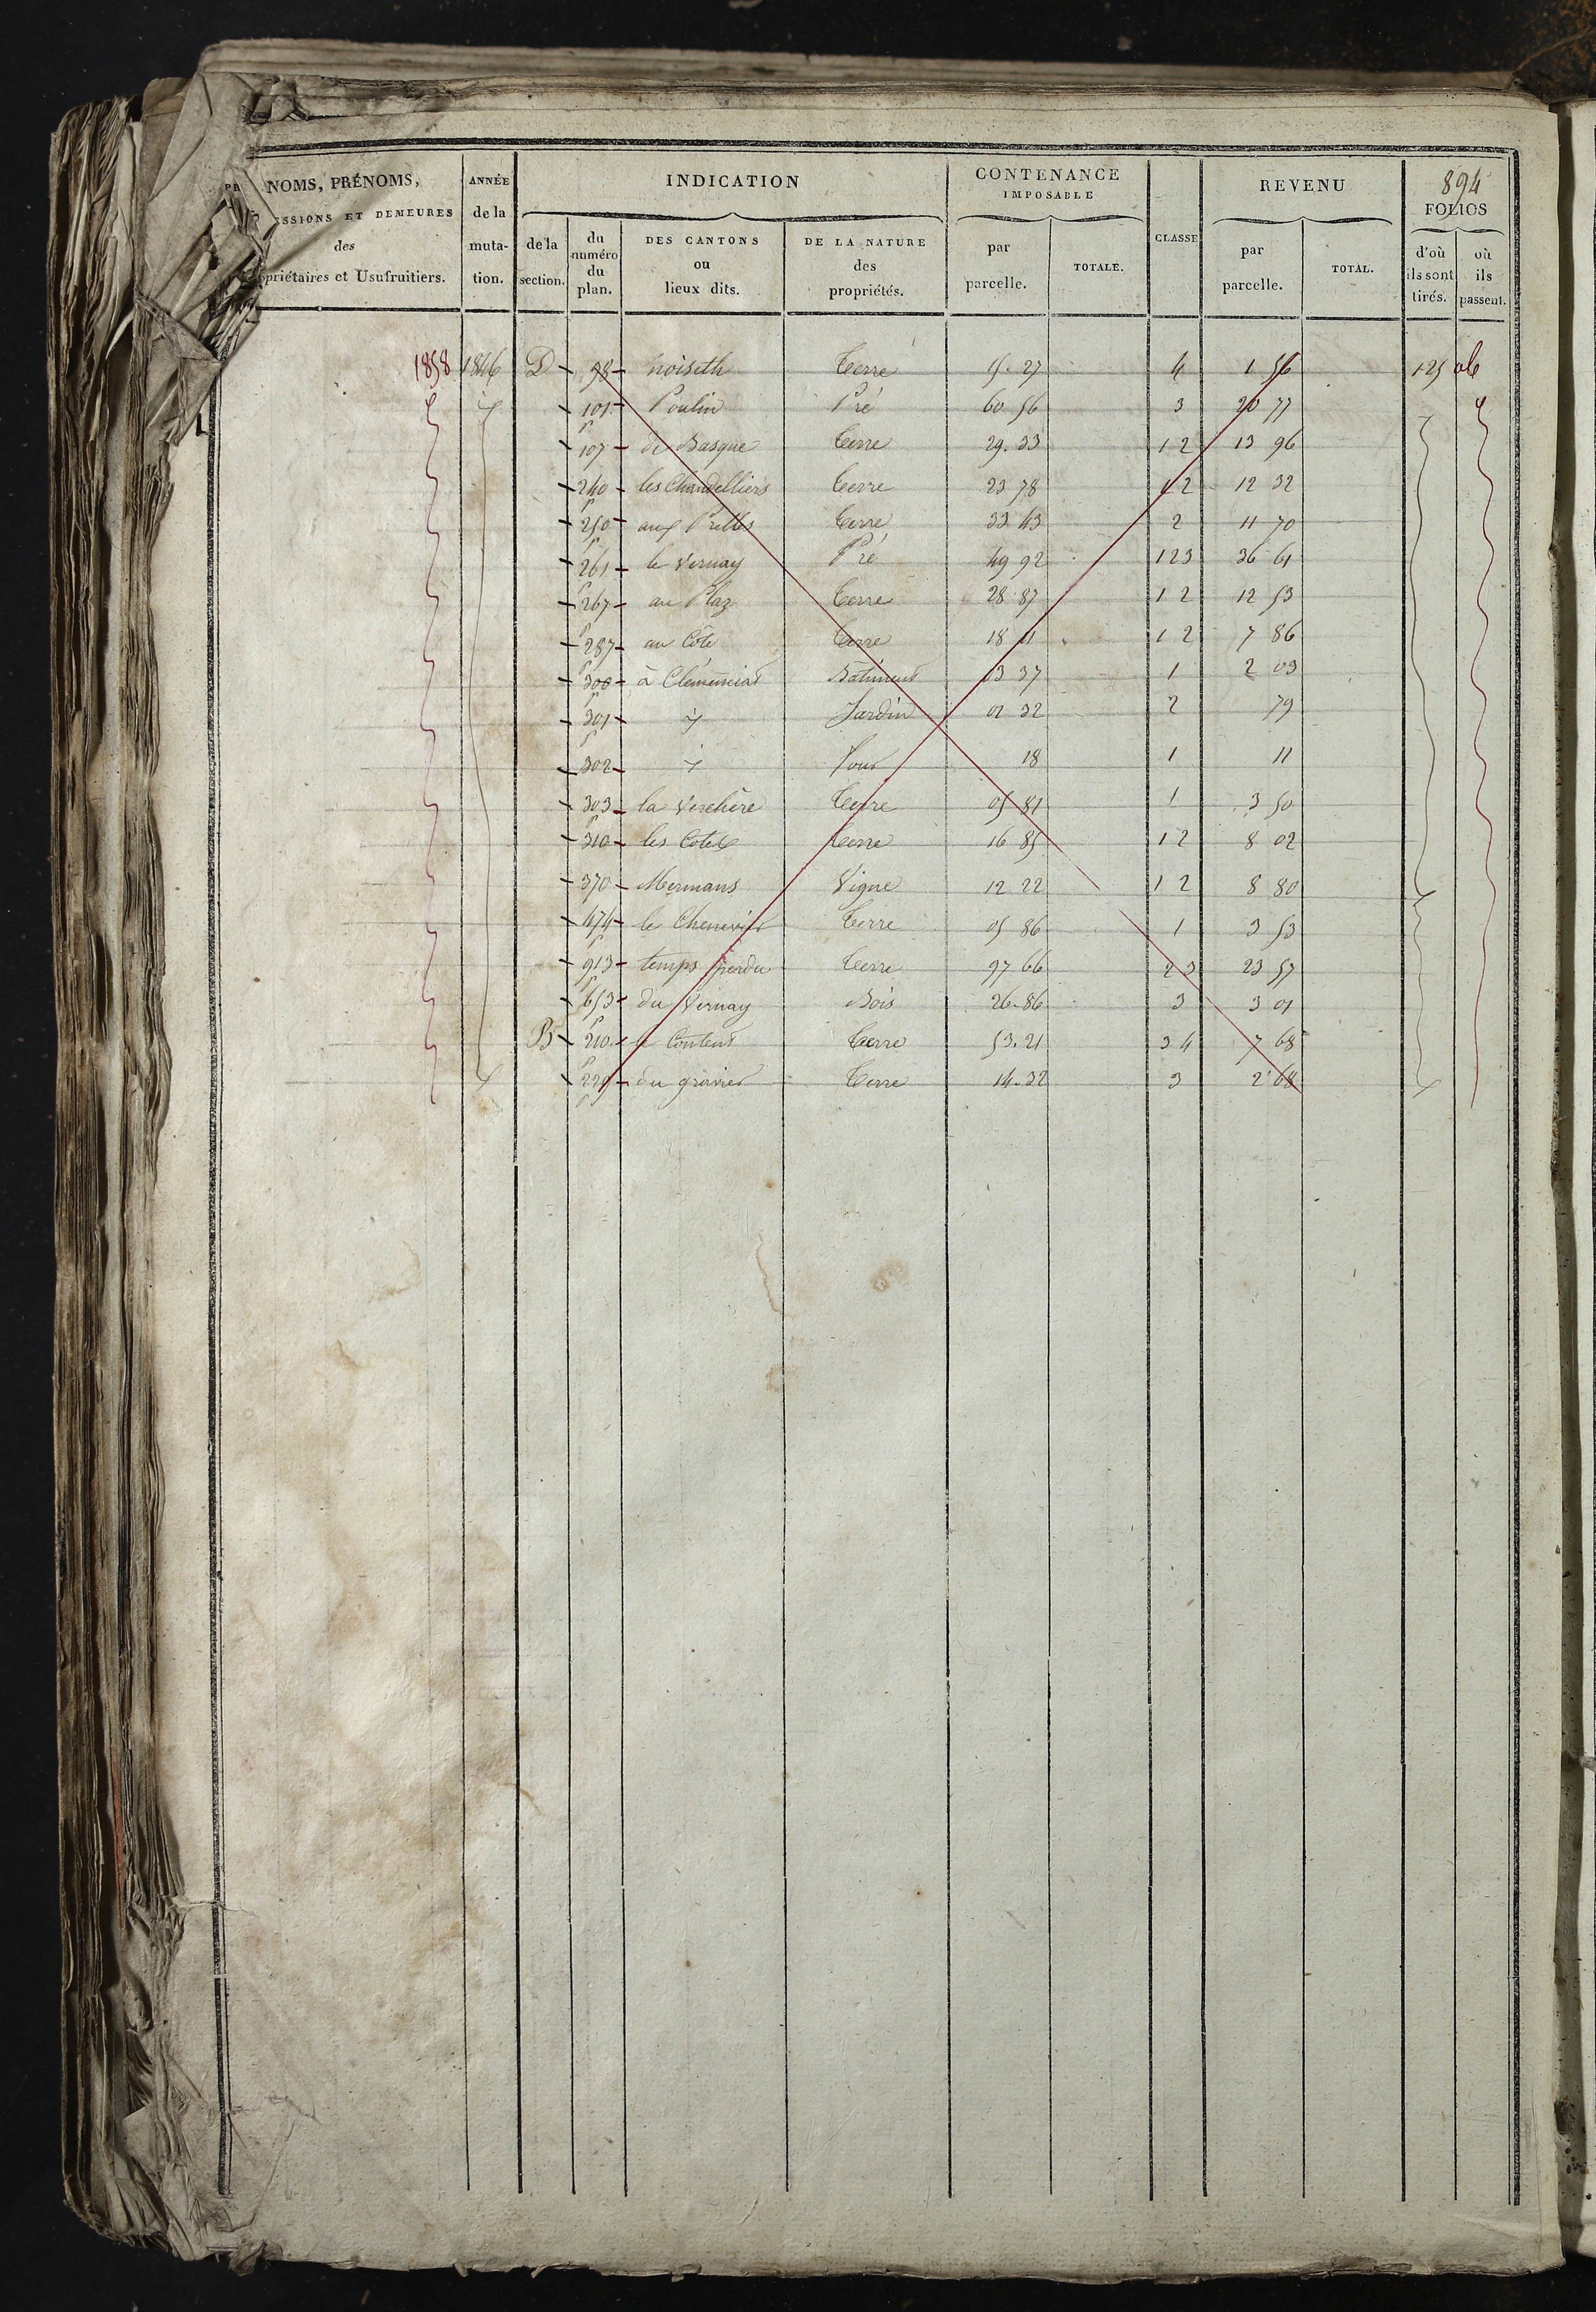 894
NOMS, PRÉNOMS, ANNÉE INDICATION CONTENANCE IMPOSABLE CLASSE REVENU FOLIOS
ET DEMEURES des et Usufruitiers. de la muta- tion. de la section. du numéro du plan. DES CANTONS ou lieux dits. DE LA NATURE des propriétés. par parcelle. TOTALE. par parcelle. TOTAL. d'où ils sont tirés. où ils passent.
1858 1846 D 98 noiseth Terre 15. 27 4 1 56 125
101 Poulin Pré 60 56 3 20 77
P 107 de Basque Terre 29. 33 1 2 13 96
240 les Chandelliers Terre 23 78 1 2 12 32
P 250 aux Prelles Terre 33 43 2 11 70
P 261 le Vernay Pré 49 92 1 2 3 36 61
P 267 au Plaz Terre 28 87 1 2 12 53
P 287 au Côte Terre 18 11 1 2 7 86
P 300 à Clemenciat Bâtiment 03 37 1 2 03
P 301 id Jardin 01 32 2 79
P 302 id Four 18 1 11
303 la Verchère Terre 05 81 1 3 50
P 310 les Cotes Terre 16 85 1 2 8 02
370 Mermans Vigne 12 22 1 2 8 80
474 le Chenevier Terre 05 86 1 3 53
P 913 temps perdu Terre 97 66 2 3 23 57
P 653 du Vernay Bois 26. 86 3 3 01
B P 210 le Terre 53. 21 3 4 7 68
P du gravier Terre 14. 32 3 2 68